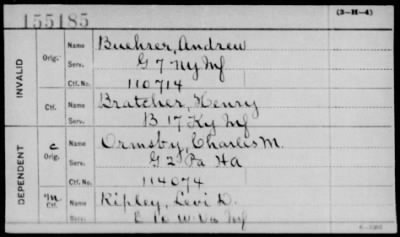 155185
(3-H-4)
INVALID
Orig.
Name Buehrer, Andrew
Serv. G 7 Ny Inf
Ctf. No. 110714
Ctf.
Name Bratcher, Henry
Serv. B 17 Ky Inf
DEPENDENT
C
Orig.
Name Ormsby, Charles M.
Serv. G 2 Pa H A
Ctf. No. 114074
M
Ctf.
Name Ripley, Levi D.
Serv. B 10 W Va Inf